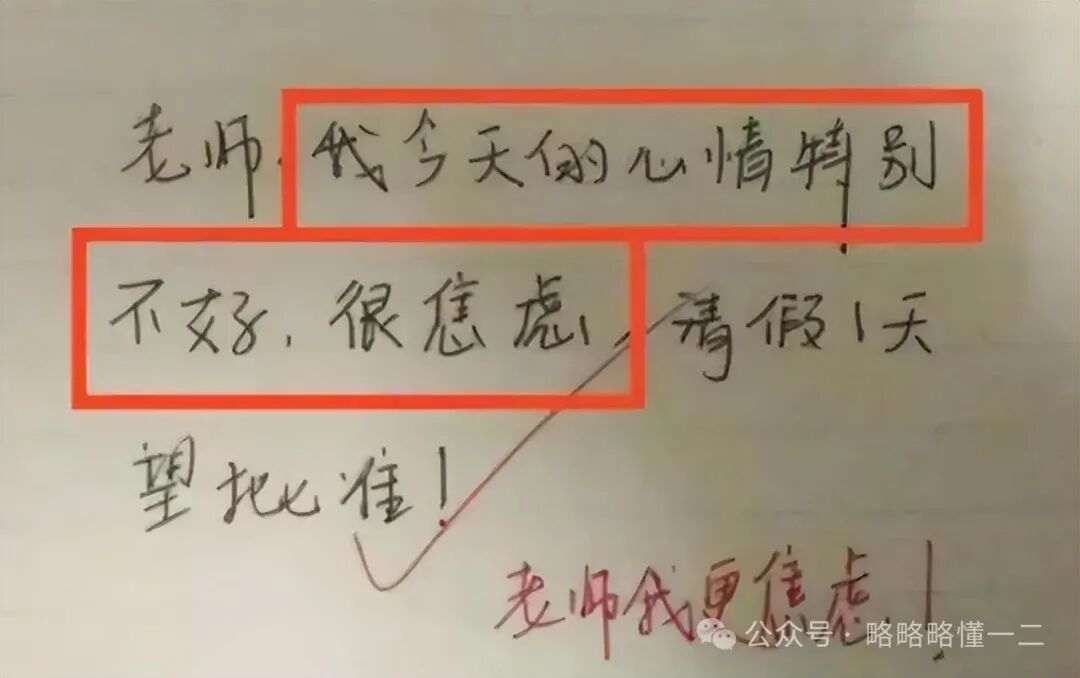 老师，我今天的心情特别
不好，很焦虑，请假1天
望批准！
老师我更焦虑！
公众号·略略略懂一二